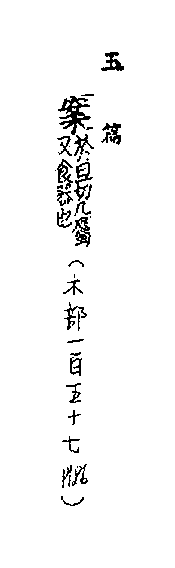 玉篇
案於旦切几屬
又食器也(木部一百五十七)